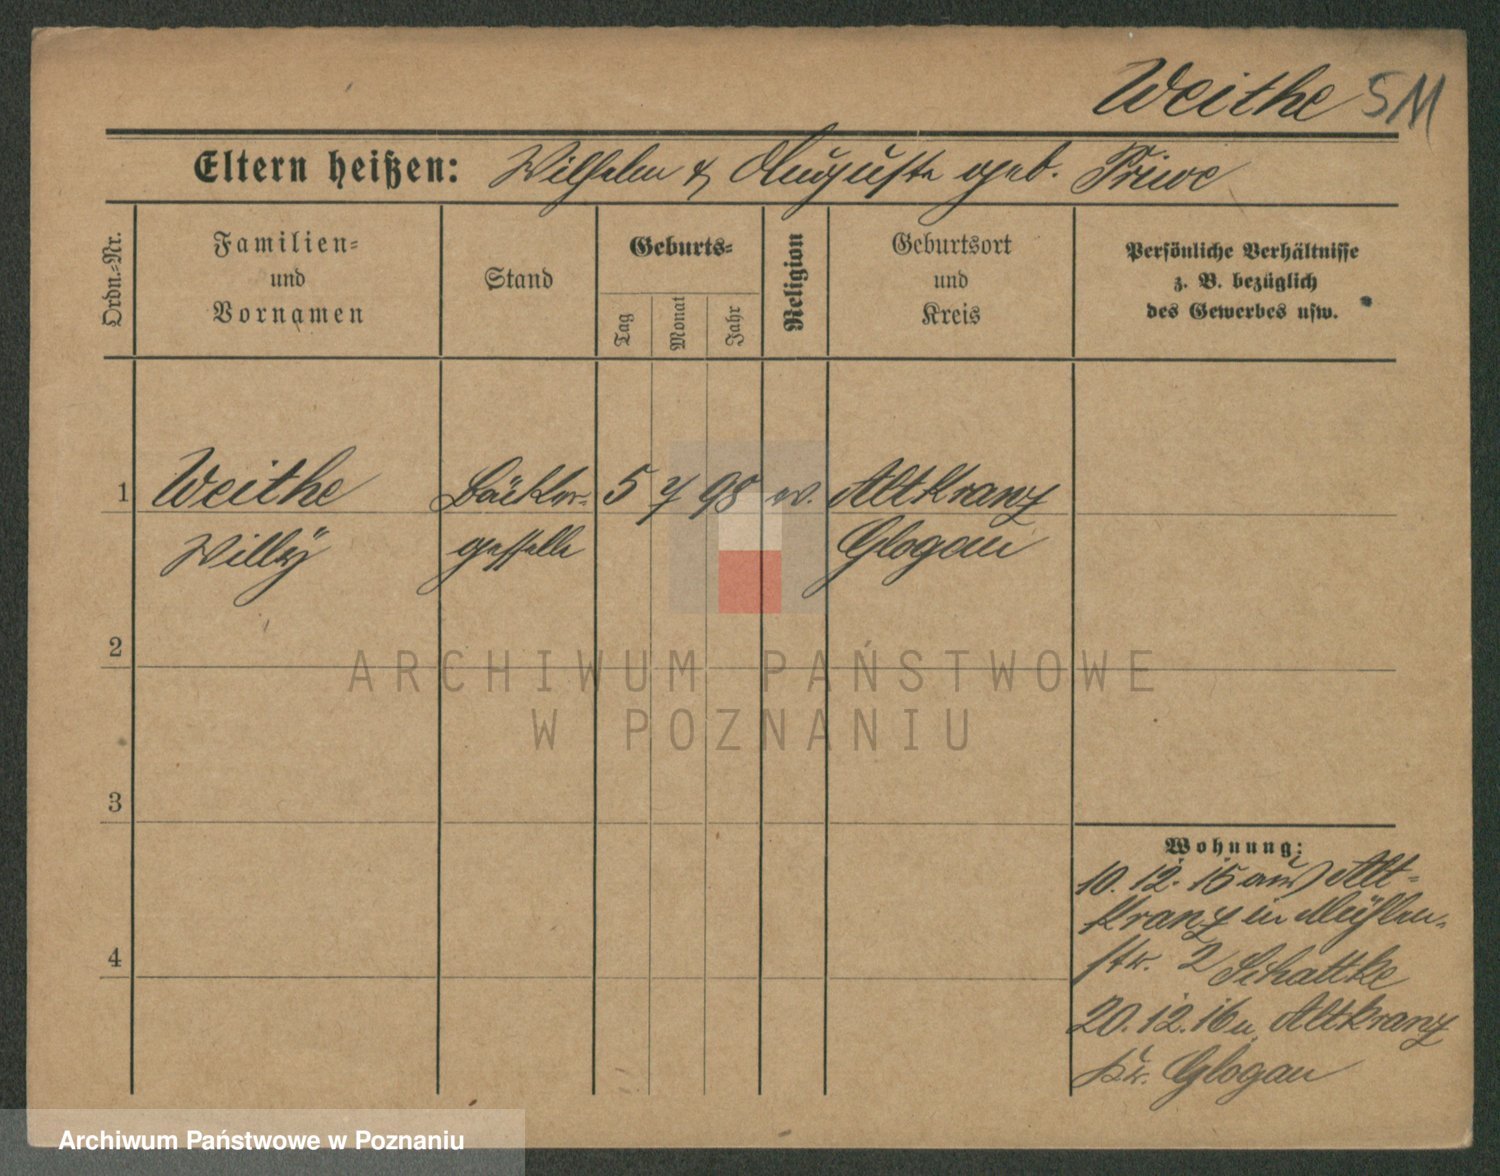 Weithe 511
Eltern heißen: Wilhelm & Auguste geb. Priwe
Ordn.-Nr.
Familien-
und
Vornamen
Stand
Geburts-
Tag
Monat
Jahr
Religion
Geburtsort
und
Kreis
Persönliche Verhältnisse
z. B. bezüglich
des Gewerbes usw.
1 Weithe Bäcker- 5 7 98 ev. Altkranz
Willy geselle Glogau
2
3
4
ARCHIWUM PAŃSTWOWE
W POZNANIU
Wohnung:
10.12.15 aus Alt-
kranz in Mühlen-
str. 2 Schattke
20.12.16 n. Altkranz
Kr. Glogau
Archiwum Państwowe w Poznaniu